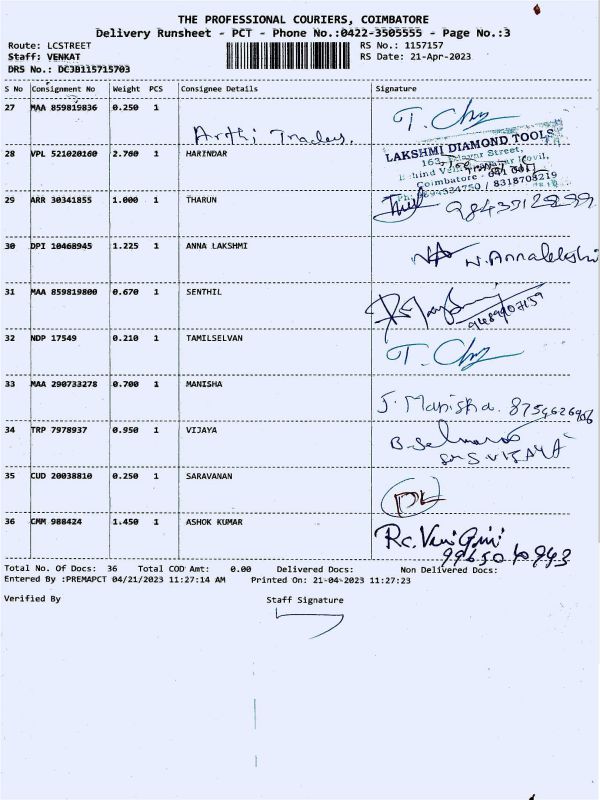 THE PROFESSIONAL COURIERS, COIMBATORE
Delivery Runsheet - PCT - Phone No.:0422-3505555 - Page No.:3
Route: LCSTREET RS No.: 1157157
Staff: VENKAT RS Date: 21-Apr-2023
DRS No.: DCJB115715703
S No Consignment No Weight PCS Consignee Details Signature
27 MAA 859819836 0.250 1 T. Chz
Arthi Traders.
28 VPL 521020160 2.760 1 HARINDAR LAKSHMI DIAMOND TOOLS
Coimbatore
29 ARR 30341855 1.000 1 THARUN
30 DPI 10468945 1.225 1 ANNA LAKSHMI
31 MAA 859819800 0.670 1 SENTHIL
32 NDP 17549 0.210 1 TAMILSELVAN T. Chz
33 MAA 290733278 0.700 1 MANISHA J. Manisha.
34 TRP 7978937 0.950 1 VIJAYA
35 CUD 20038810 0.250 1 SARAVANAN
36 CMM 988424 1.450 1 ASHOK KUMAR
Total No. Of Docs: 36 Total COD Amt: 0.00 Delivered Docs: Non Delivered Docs:
Entered By :PREMAPCT 04/21/2023 11:27:14 AM Printed On: 21-04-2023 11:27:23
Verified By Staff Signature